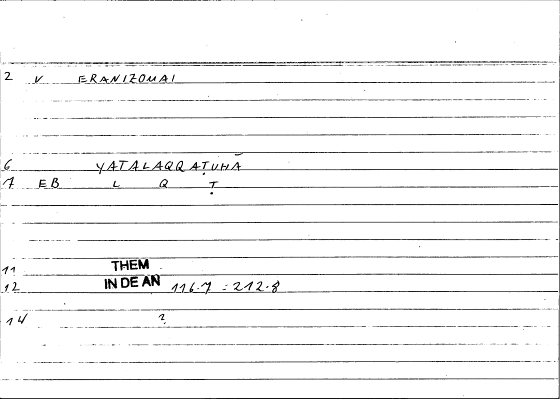 2 V ERANIZOMAI
6 YATALAQQAṬUHĀ
7 EB L Q Ṭ
11 THEM
12 IN DE AN 116.7 = 212.8
14 ?